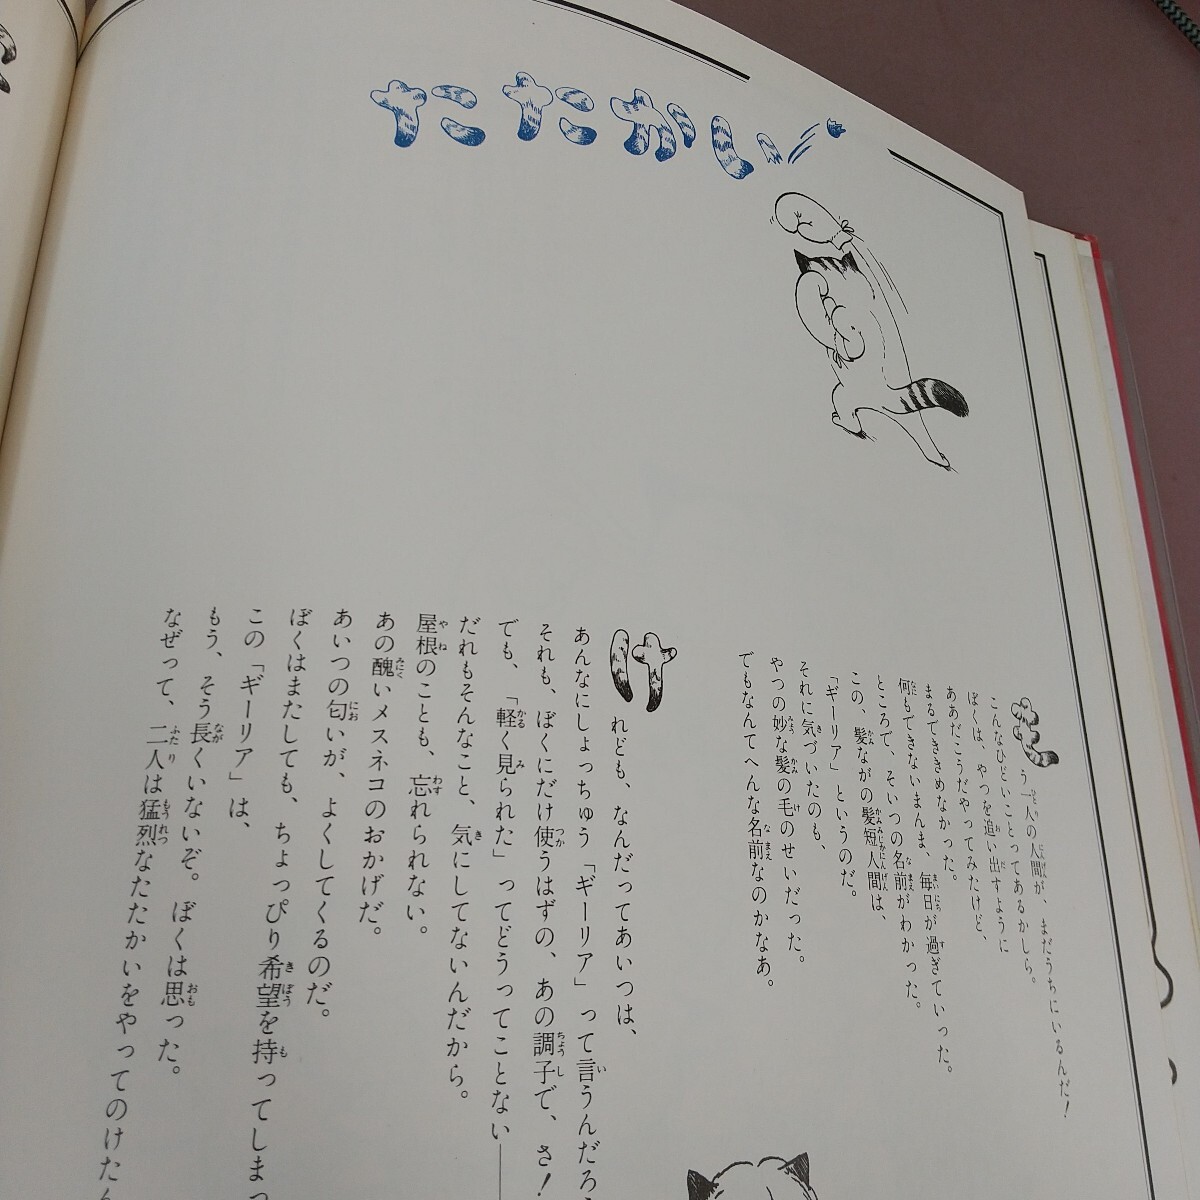 たたかい
もう一人の人間が、まだうちにいるんだ!
こんなひどいことってあるかしら。
ぼくは、やつを追い出すように
ああだこうだやってみたけど、
まるでききめなかった。
何もできないまんま、毎日が過ぎていった。
ところで、そいつの名前がわかった。
この、髪ながの髪短人間は、
「ギーリア」というのだ。
それに気づいたのも、
やつの妙な髪の毛のせいだった。
でもなんてへんな名前なのかなあ。
けれども、なんだってあいつは、
あんなにしょっちゅう「ギーリア」って言うんだろ
それも、ぼくにだけ使うはずの、あの調子で、さ!
でも、「軽く見られた」ってどうってことない──
だれもそんなこと、気にしてないんだから。
屋根のことも、忘れられない。
あの醜いメスネコのおかげだ。
あいつの匂いが、よくしてくるのだ。
ぼくはまたしても、ちょっぴり希望を持ってしまっ
この「ギーリア」は、
もう、そう長くいないぞ。ぼくは思った。
なぜって、二人は猛烈なたたかいをやってのけたん